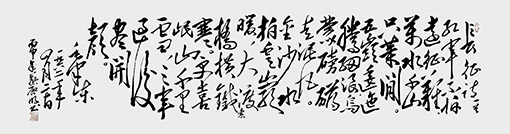 紅軍不怕
遠征難
萬水千山
只等閒
五嶺逶迤
騰細浪烏
蒙磅礴
走泥丸
金沙水
拍雲崖
暖大渡
橋橫鐵索
寒更喜
岷山千里
雪三軍
過後
盡開
顏
毛澤東
一九六二年
四月二十日